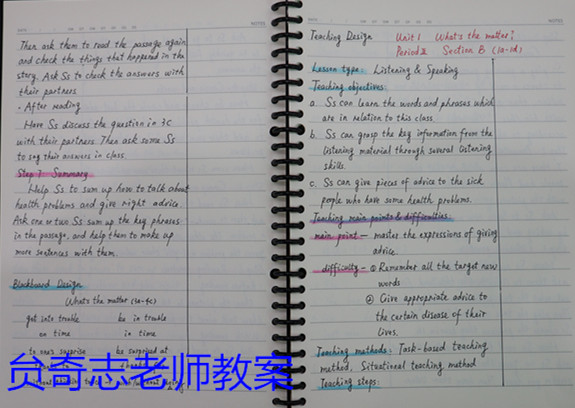 Then ask them to read the passage again
and check the things that happened in the
story. Ask Ss to check the answers with
their partners
. After reading
Have Ss discuss the question in 3C
with their partners. Then ask some Ss
to say their answers in class.
Step 7 Summary
Help Ss to sum up how to talk about
health problems and give right advice
Ask one or two Ss sum up the key phrases
in the passage, and help them to make up
more sentences with them.
Blackboard Design
What's the matter (3a-4c)
get into trouble be in trouble
on time in time
to one's surprise be surprised at
NOTES
Teaching Design Unit 1 What's the matter?
Period Ⅲ Section B (1a-1d)
Lesson type: Listening & Speaking
Teaching objectives:
a. Ss can learn the words and phrases which
are in relation to this class.
b. Ss can grasp the key information from the
listening material through several listening
skills.
c. Ss can give pieces of advice to the sick
people who have some health problems.
Teaching main points & difficulties:
main point — master the expressions of giving
advice.
difficulty - ① Remember all the target new
words
② Give appropriate advice to
the certain disease of their
lives.
Teaching methods: Task-based teaching
method, Situational teaching method
Teaching steps:
贠奇志老师教案